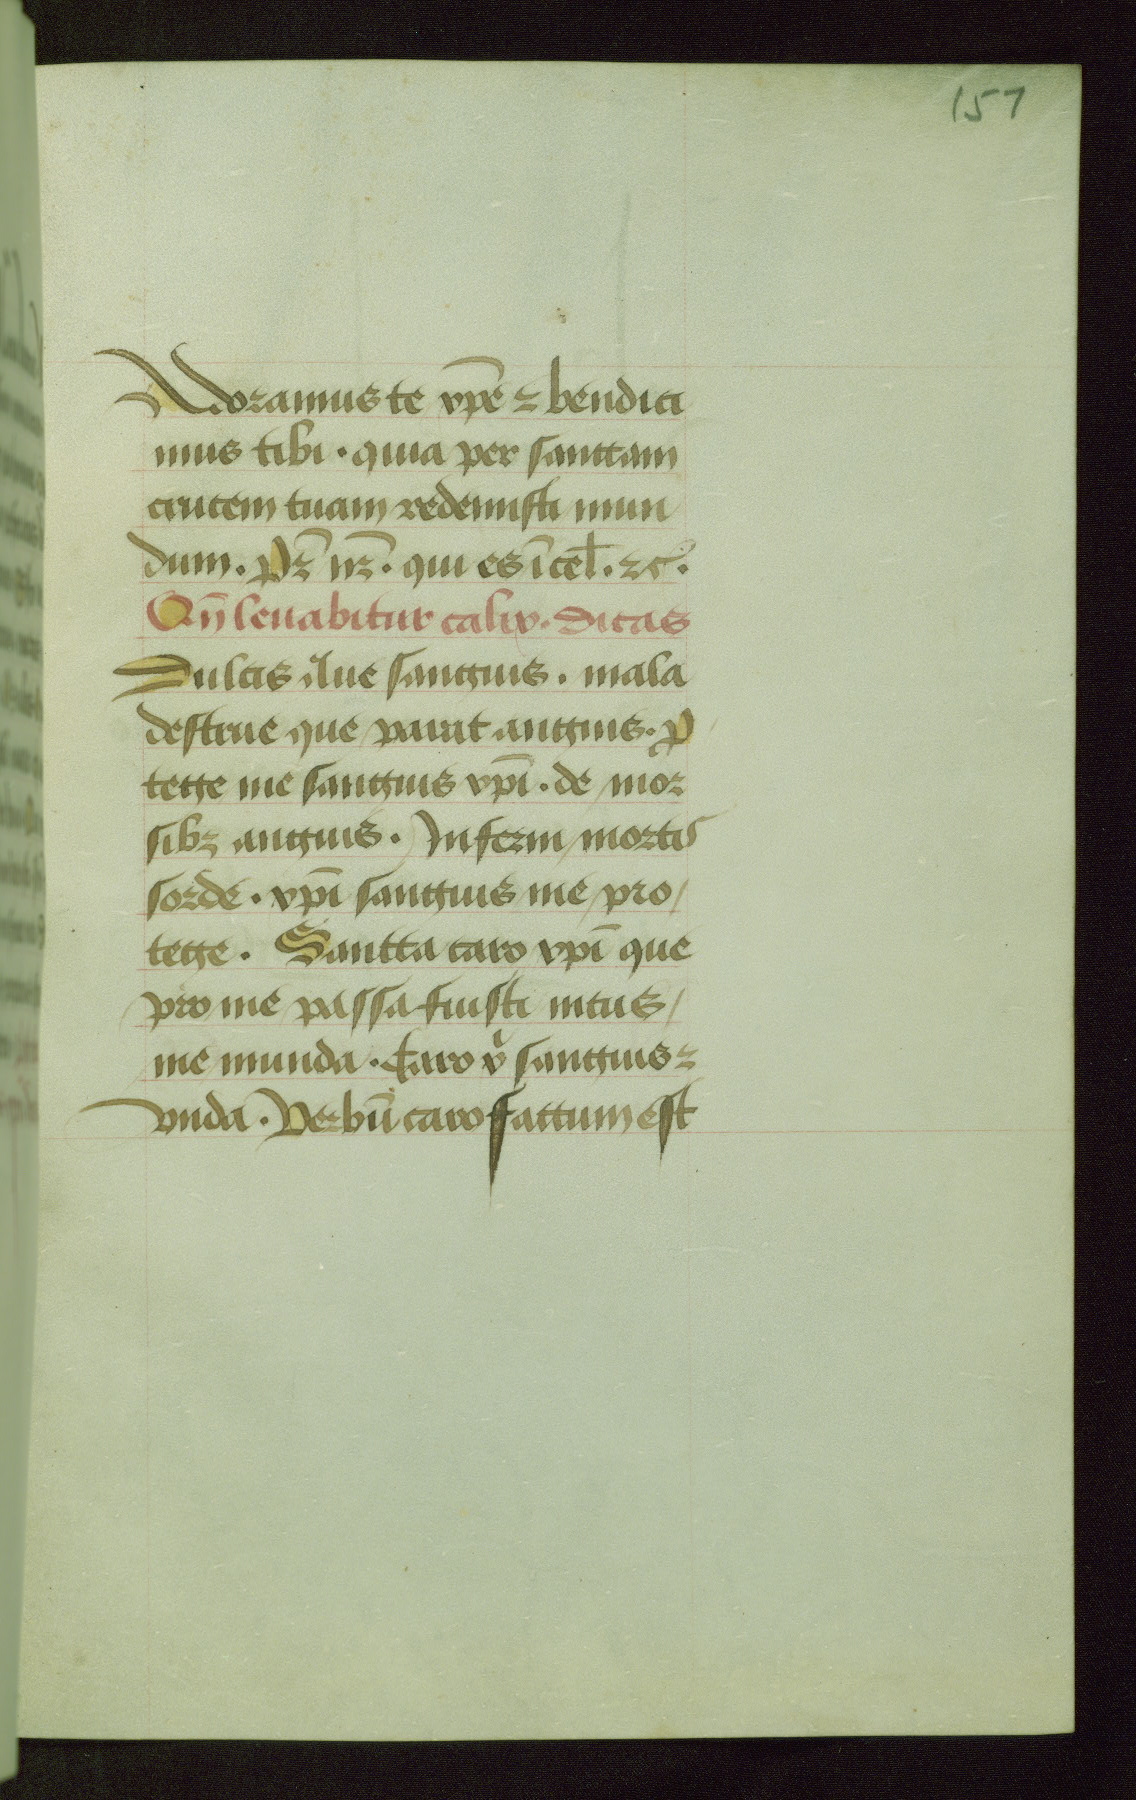 157
Adoramus te xp̄e ⁊ benedici
mus tibi · quia per sanctam
crucem tuam redemisti mun
dum · Pr̄ nr̄ · qui es ī cel̄ · ⁊c̄ ·
Qn̄ leuabitur calix · Dicas
Dulcis aue sanguis · mala
destrue que parat anguis · P
tege me sanguis xp̄i · de mor
sibꝫ anguis · Inferni mortis
sorde · xp̄i sanguis me pro/
tege · Sancta caro xp̄i que
pro me passa fuisti intus/
me munda · Caro v̉ sanguis ⁊
vnda · Verbū caro factum est